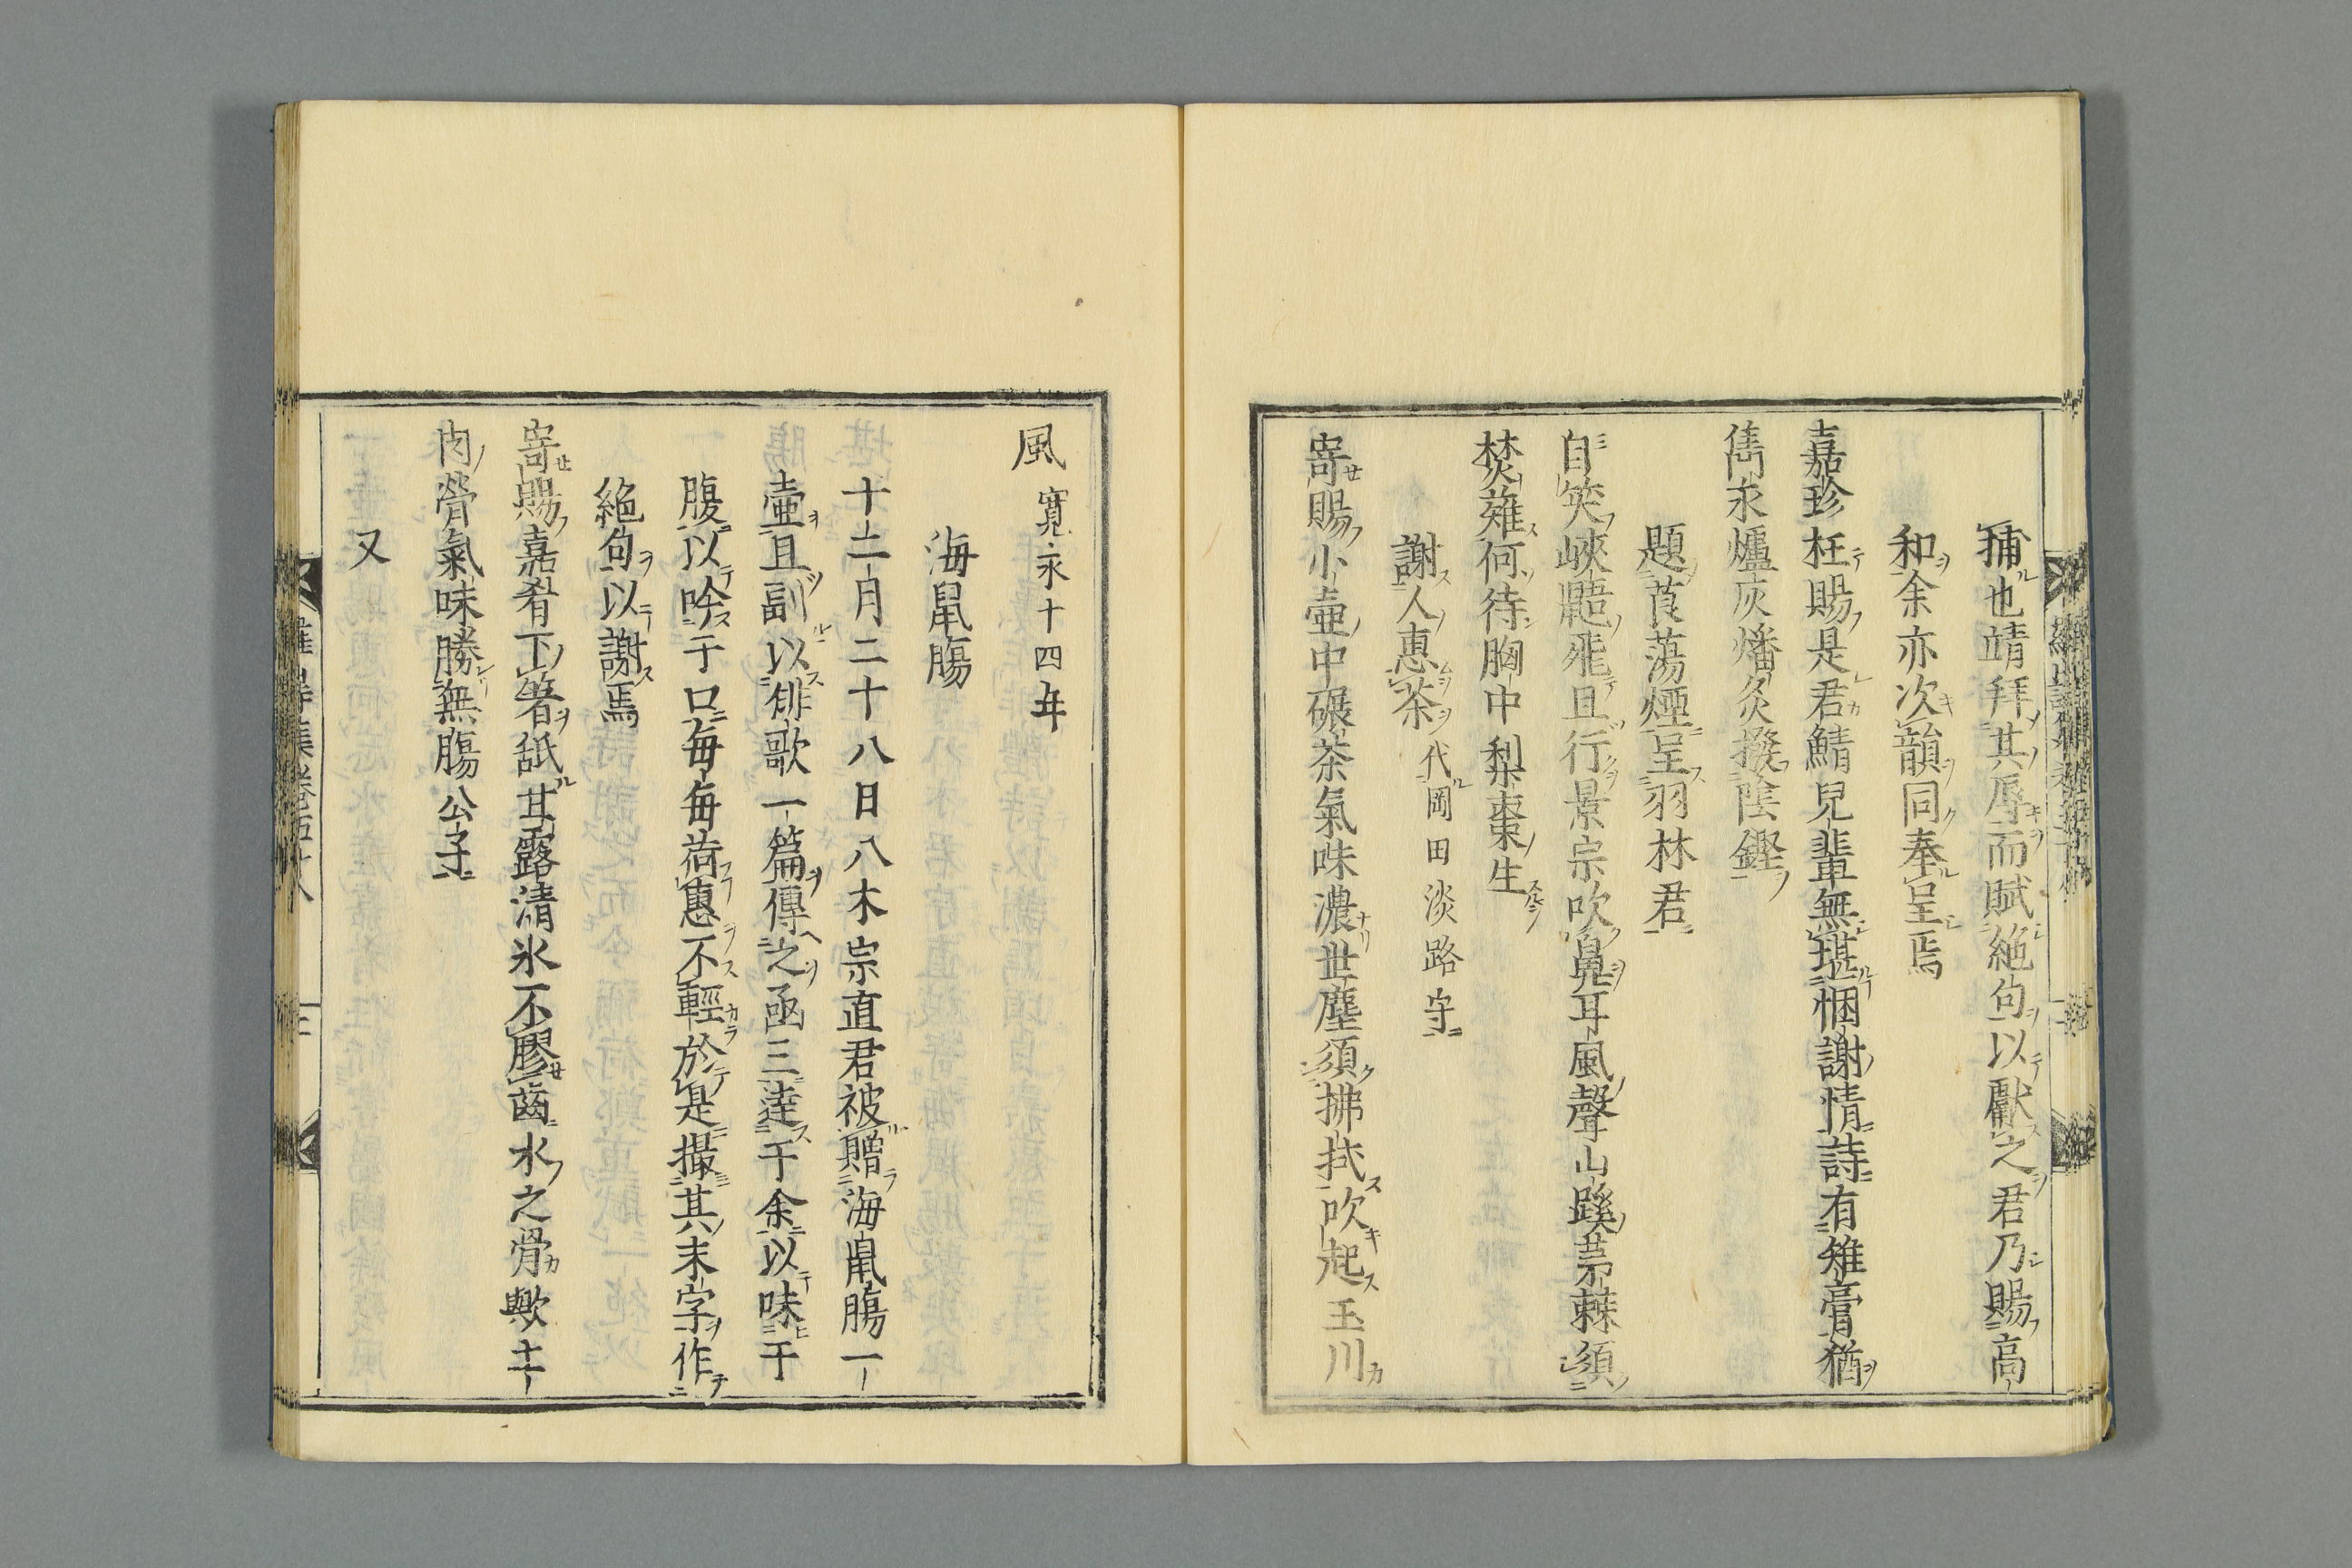 捕也靖拜其辱而賦絶句以獻之君乃賜高
和余亦次韻同奉呈焉
嘉珍枉賜是君鯖兒輩無堪悃謝情詩有雉膏猶
雋永爐灰燔炙撥陰鏗
題莨蕩煙呈羽林君
自笑峽飛且行景宗吹鼻耳風聲山蹊荊棘須
焚薙何待胸中梨棗生
謝人惠茶代岡田淡路守
寄賜小壺中碾茶氣味濃世塵須拂拭吹起玉川
風 寛永十四年
海鼠腸
十二月二十八日八木宗直君被贈海鼠腸一
壺且副以俳歌一篇傳之函三達于余以味于
腹以吟于口每每荷惠不輕於是撮其末字作
絶句以謝焉
寄賜嘉肴下箸舐甘露清氷不膠齒水之滑歟土
肉膋氣味勝無腸公子
又